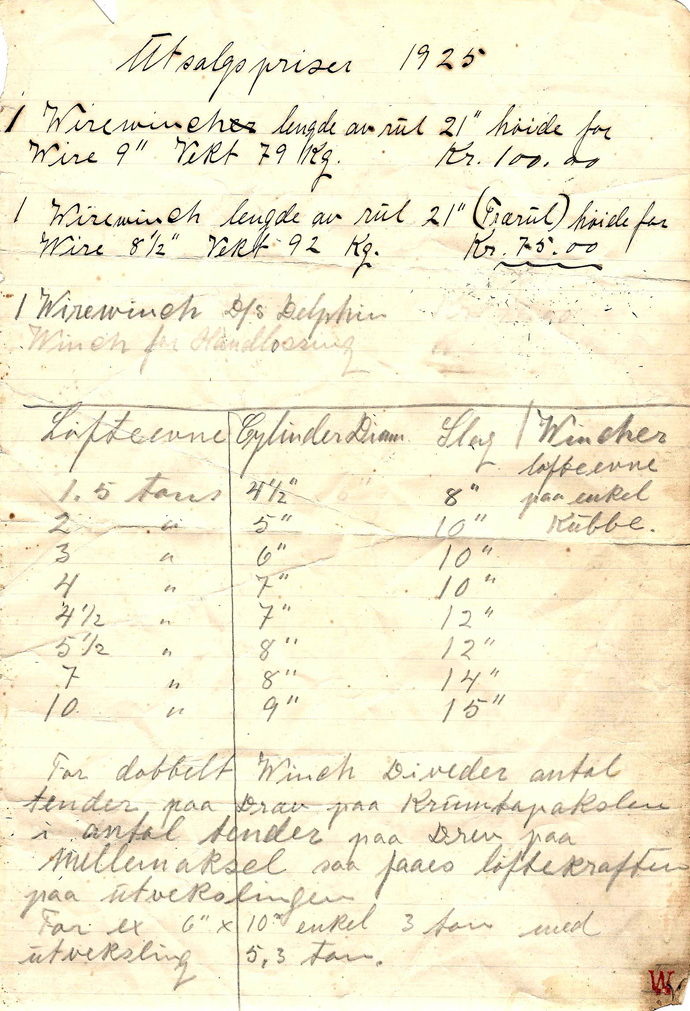 Utsalgspriser 1925
1 Wirewincher lengde av rul 21" høide for
Wire 9" Vekt 79 Kg. Kr. 100.00
1 Wirewinch lengde av rul 21" (Trærul) høide for
Wire 8 1/2" Vekt 92 Kg. Kr. 75.00
1 Wirewinch D/s Delphin
Winch for Handlossing
Løfteevne Cylinder Diam Slag Wincher
løfteevne
1.5 tons 4 1/2" 8" paa enkel
2 " 5" 10" Kubbe.
3 " 6" 10"
4 " 7" 10"
4 1/2 " 7" 12"
5 1/2 " 8" 12"
7 " 8" 14"
10 " 9" 15"
For dobbelt Winch Diveder antal
tender paa Drav paa Krumtapakslen
i antal tender paa Drev paa
Mellemaksel saa faaes løftekraften
paa utvekslingen
For ex 6" x 10" enkel 3 ton med
utveksling 5,3 ton.
W